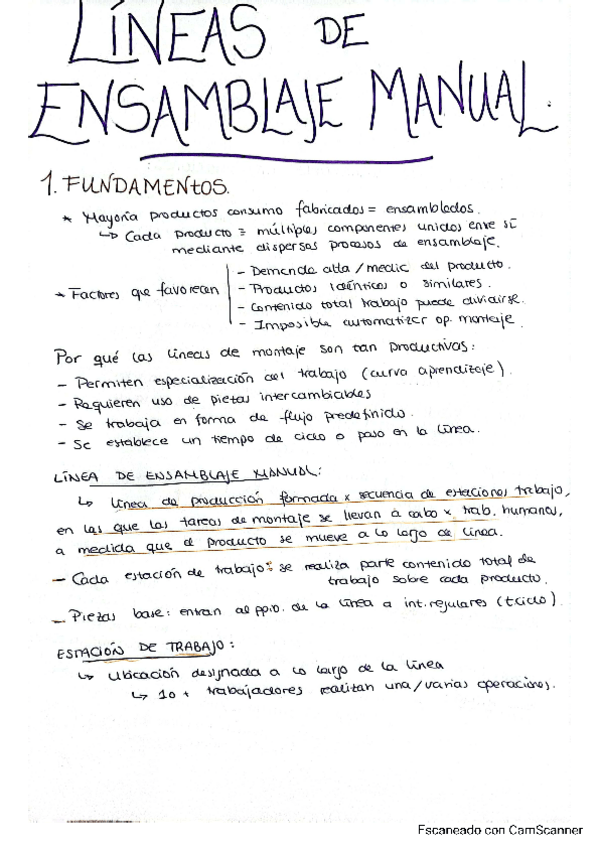 LÍNEAS DE
ENSAMBLAJE MANUAL.
1. FUNDAMENTOS.
* Mayoría productos consumo fabricados = ensamblados.
↳ Cada producto = múltiples componentes unidos entre sí
mediante dispersos procesos de ensamblaje.
* Factores que favorecen
- Demanda alta/media del producto.
- Productos idénticos o similares.
- Contenido total trabajo puede dividirse.
- Imposible automatizar op. montaje
Por qué las líneas de montaje son tan productivas:
- Permiten especialización del trabajo (curva aprendizaje).
- Requieren uso de piezas intercambiables
- Se trabaja en forma de flujo predefinido.
- Se establece un tiempo de ciclo o paso en la línea.
LÍNEA DE ENSAMBLAJE MANUAL:
↳ Línea de producción formada x secuencia de estaciones trabajo,
en las que las tareas de montaje se llevan a cabo x trab. humanos,
a medida que el producto se mueve a lo largo de línea.
- Cada estación de trabajo: se realiza parte contenido total de
trabajo sobre cada producto.
- Piezas base: entran al ppio. de la línea a int. regulares (tciclo).
ESTACIÓN DE TRABAJO:
↳ Ubicación designada a lo largo de la línea
↳ 1 o + trabajadores realizan una/varias operaciones.
Escaneado con CamScanner